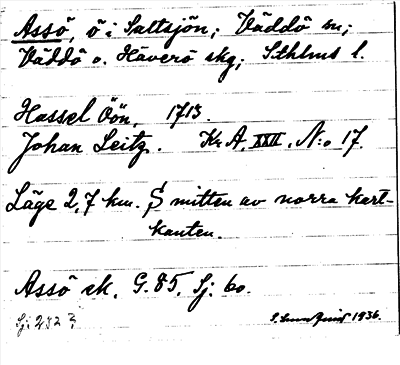 Assö, ö i Saltsjön; Väddö sn;
Väddö o. Häverö skg; Sthlms l.
Hassel Öön, 1713.
Johan Leitz. Kr. A. XXII. N:o 17.
Läge 2,7 km. S mitten av norra kart-
kanten.
Assö sk. G. 85. Sj: bo.
Sj: 232
1936.